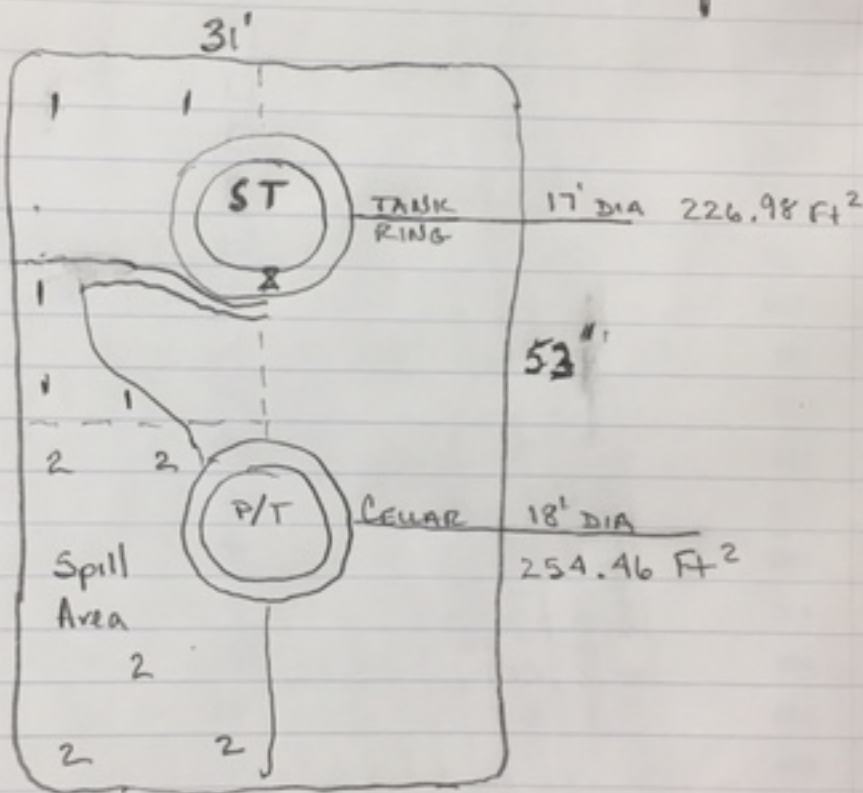 31'
1 1
ST
TANK
RING
17' DIA 226.98 Ft²
1
53"
1 1
2 2
P/T
CELLAR
18' DIA
254.46 Ft²
Spill
Area
2
2 2